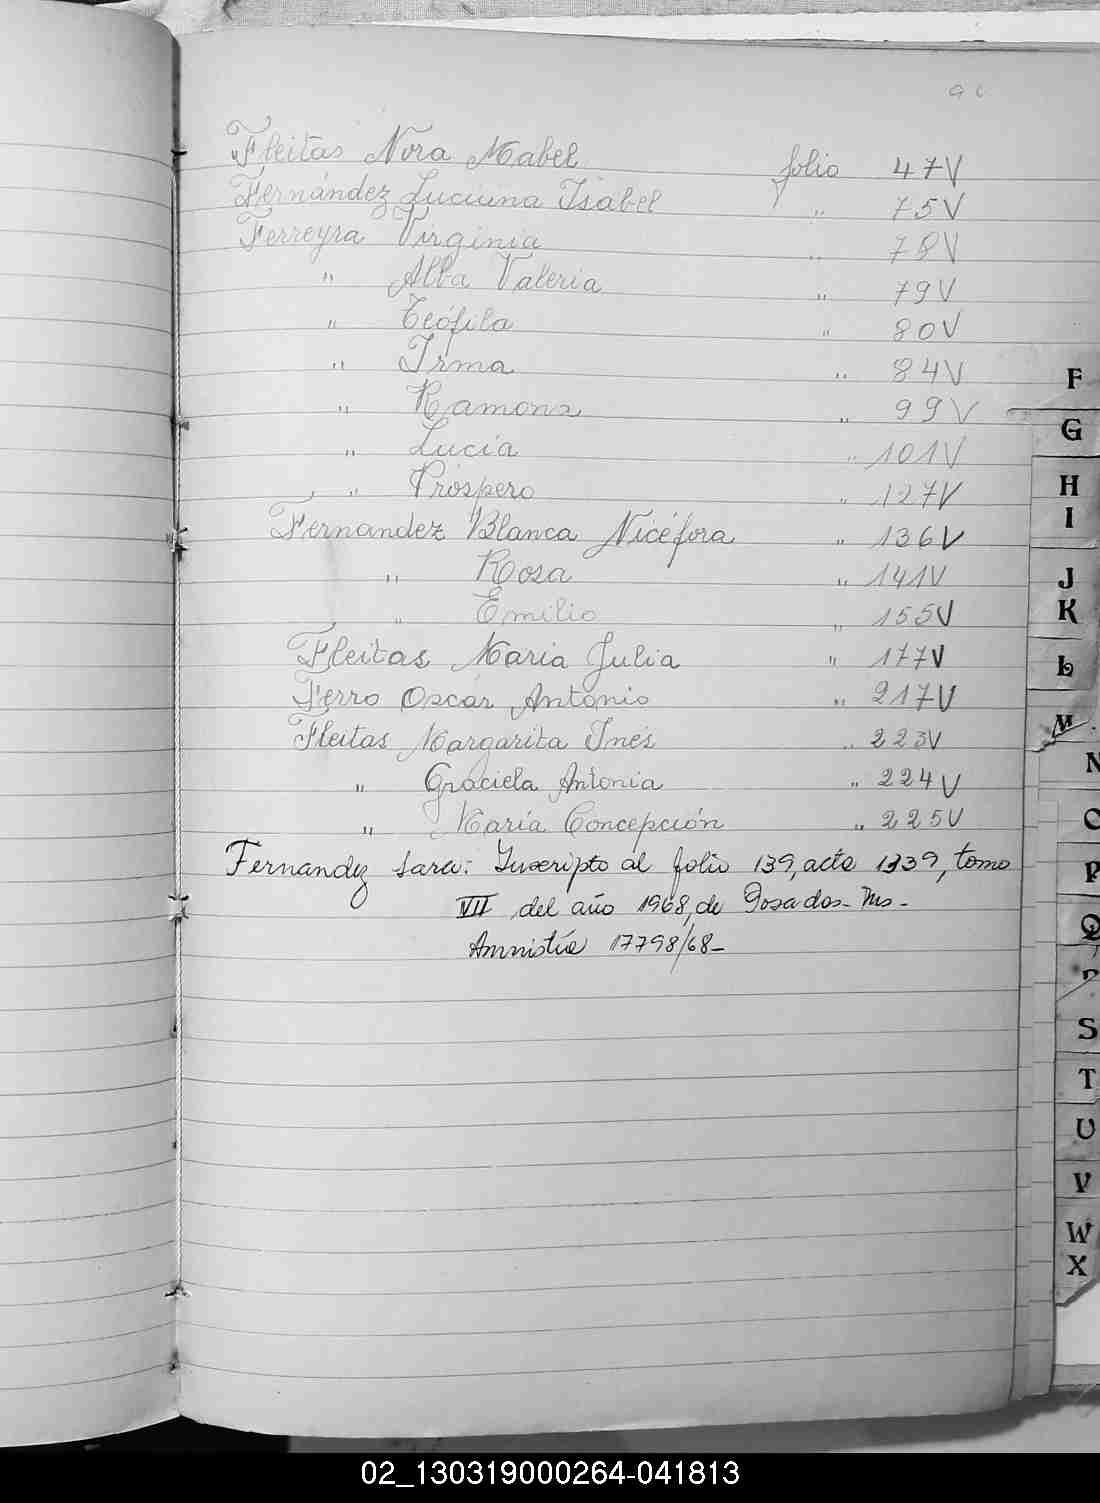 Fleitas Nora Mabel folio 47V
Fernández Luciana Isabel " 75V
Ferreyra Virginia " 78V
" Alba Valeria " 79V
" Teófila " 80V
" Irma " 84V
" Ramona " 99V
" Lucía " 101V
" Próspero " 127V
Fernandez Blanca Nicéfora " 136V
" Rosa " 141V
" Emilio " 155V
Fleitas Maria Julia " 177V
Ferro Oscar Antonio " 217V
Fleitas Margarita Inés " 223V
" Graciela Antonia " 224V
" María Concepción " 225V
Fernandez Sara: Inscripto al folio 139, acta 1339, tomo
VII del año 1968, de Posadas - Ms -
Amnistía 17798/68 -
F
G
H
I
J
K
L
M
N
O
P
Q
R
S
T
U
V
W
X
02_130319000264-041813